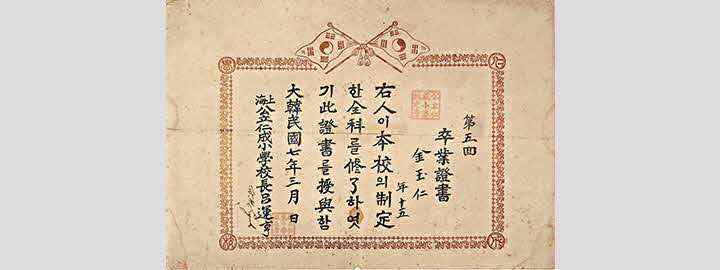 第五回
卒業證書
金玉仁
年十五
右人이本校의制定
한全科를修了하엿
기此證書를授與함
大韓民國七年三月 日
上海公立仁成小學校長呂運亨